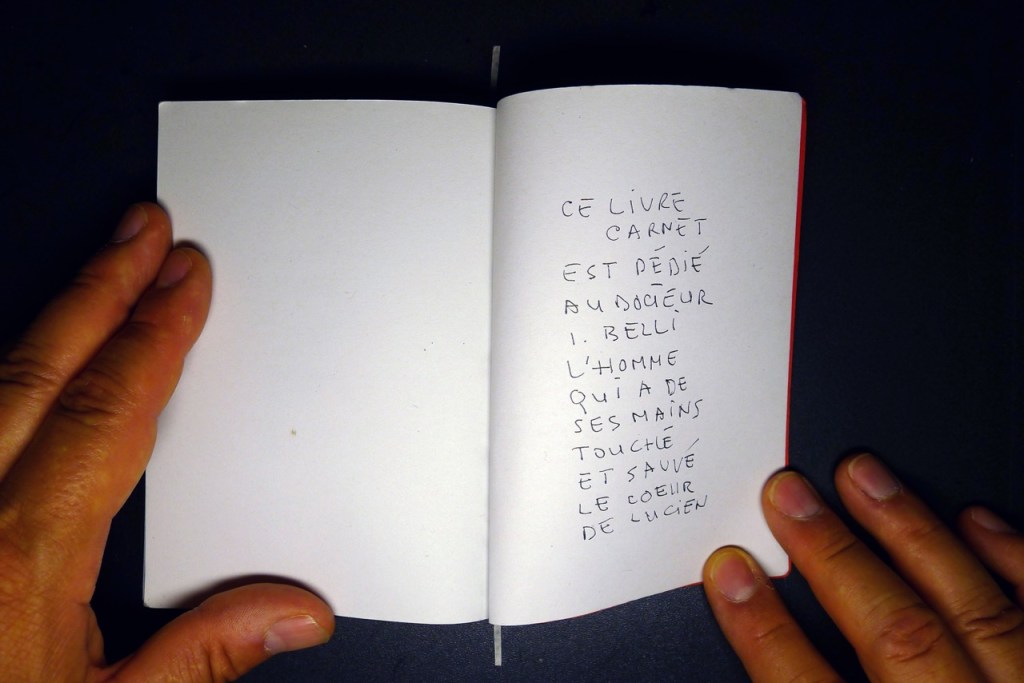 CE LIVRE
CARNET
EST DÉDIÉ
AU DOCTEUR
I. BELLI
L'HOMME
QUI A DE
SES MAINS
TOUCHÉ
ET SAUVÉ
LE COEUR
DE LUCIEN